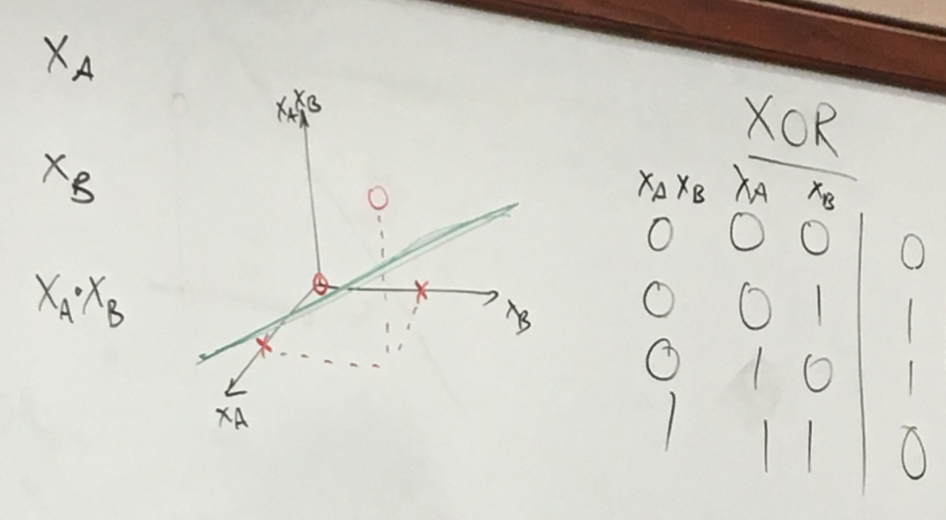 X_A
X_B
X_A·X_B
X_A X_B
X_B
X_A
XOR
X_A X_B X_A X_B
0 0 0 | 0
0 0 1 | 1
0 1 0 | 1
1 1 1 | 0